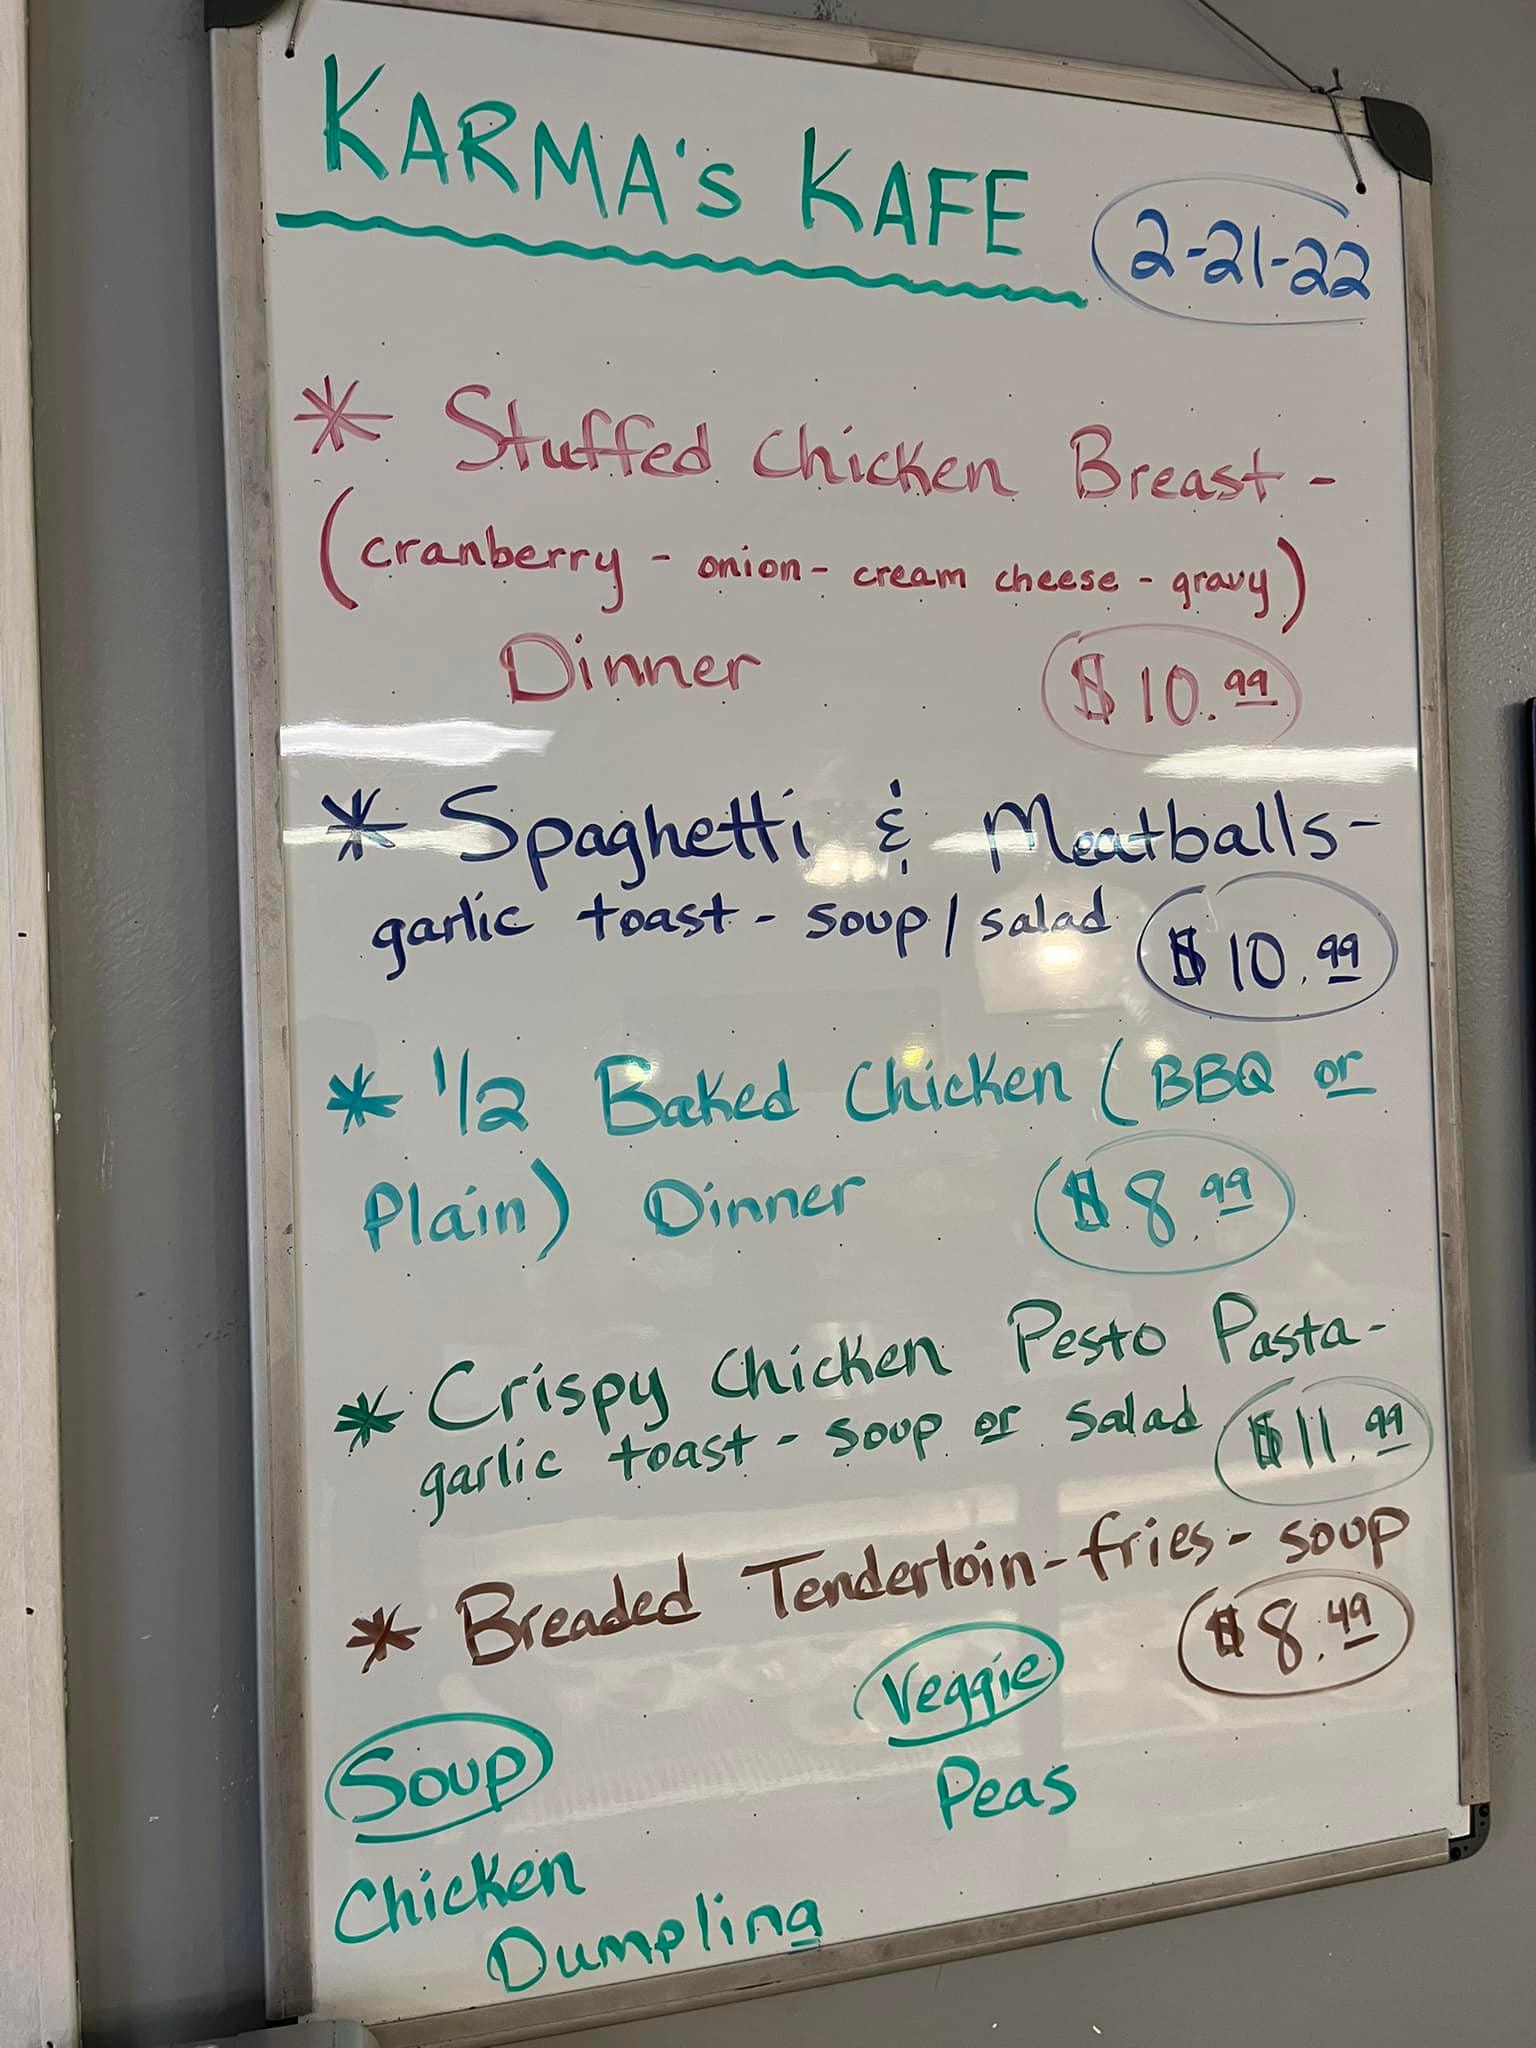 KARMA's KAFE
2-21-22
* Stuffed Chicken Breast -
(cranberry - onion - cream cheese - gravy)
Dinner $10.99
* Spaghetti & Meatballs -
garlic toast - soup / salad $10.99
* 1/2 Baked Chicken (BBQ or
Plain) Dinner $8.99
* Crispy Chicken Pesto Pasta -
garlic toast - soup or salad $11.99
* Breaded Tenderloin - fries - soup
$8.49
Veggie
Peas
Soup
Chicken
Dumpling